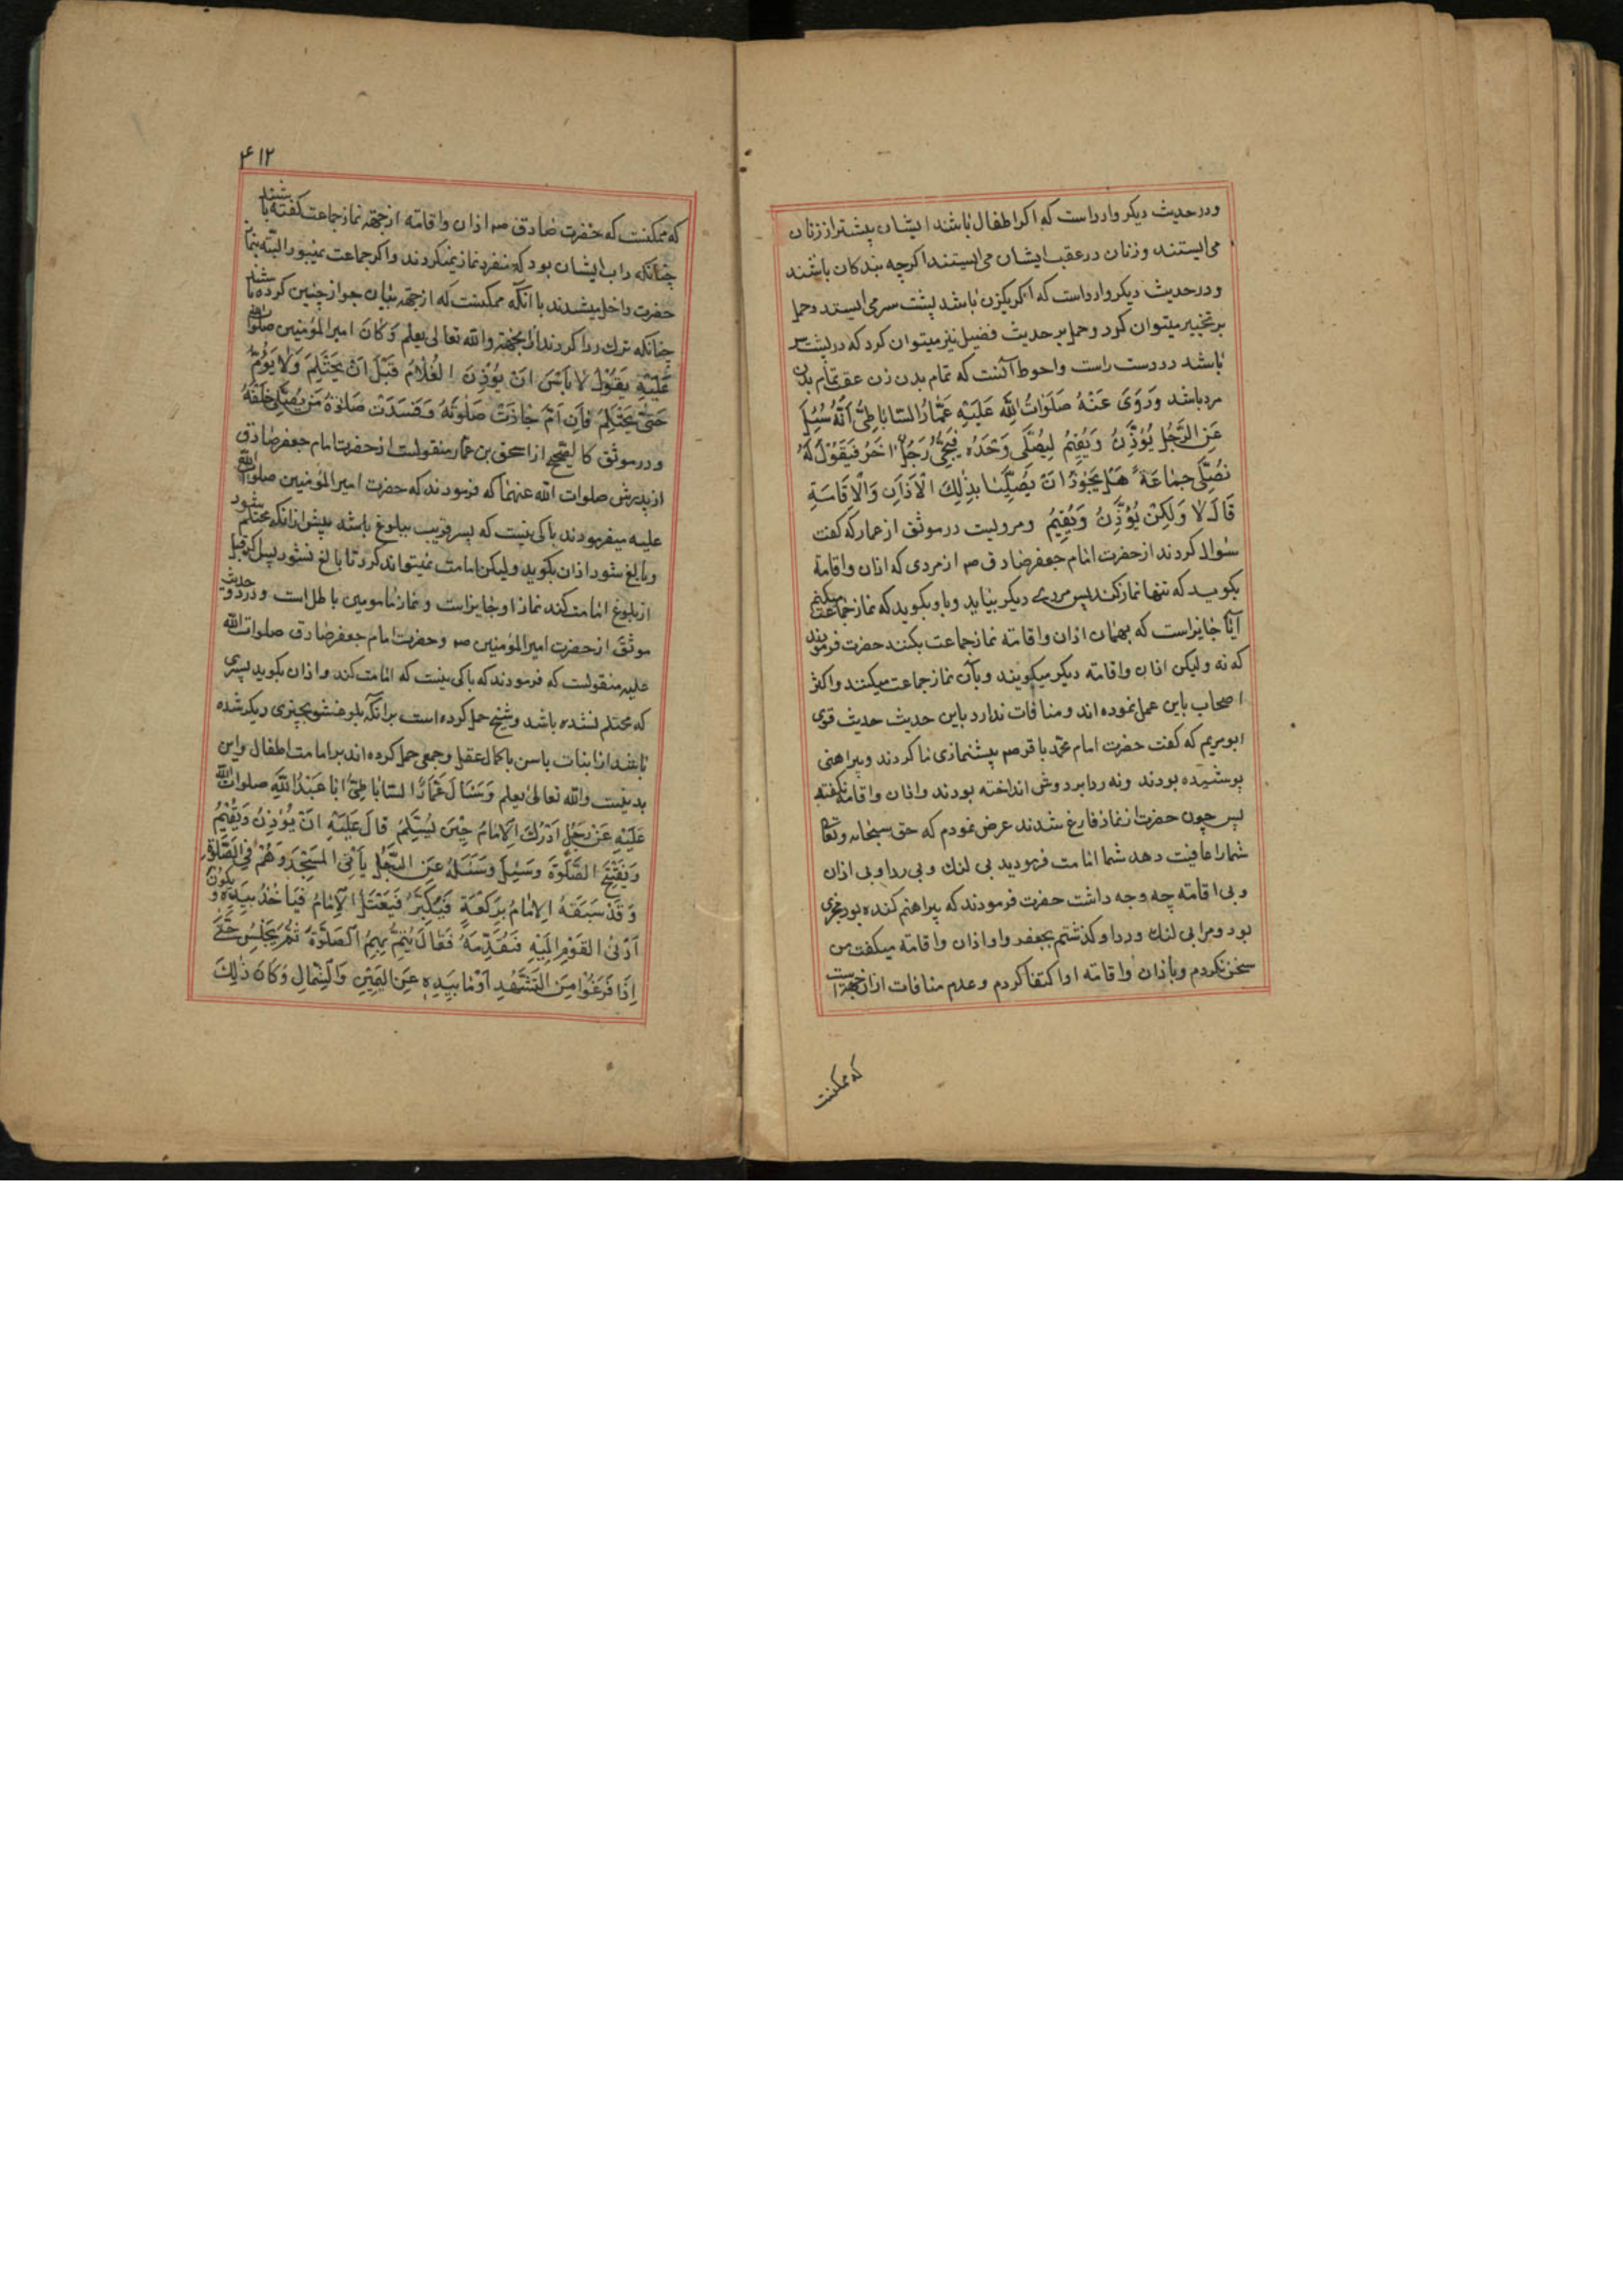 ودر حدیث دیکر وارد است که اکر اطفال باشند ایشان پیشتر از زنان
می ایستند و زنان در عقب ایشان می ایستند اکرچه بندکان باشند
ودر حدیث دیکر وارد است که اکر یکزن باشد پشت سر می ایستد وحمل
بر تخییر میتوان کرد وحمل بر حدیث فضیل نیز میتوان کرد که در پشت سر
باشد در دست راست واحوط آنست که تمام بدن زن عقب تمام بدن
مرد باشد وَرَوَى عَنْهُ صَلَوَاتُ اللّٰهِ عَلَيْهِ عَمَّارُ السَّابَاطِىُّ اَنَّهُ سُئِلَ
عَنِ الرَّجُلِ يُؤَذِّنُ وَيُقِيمُ لِيُصَلِّى وَحْدَهُ فَيَجِىُٔ رَجُلٌ اٰخَرُ فَيَقُوْلُ لَهُ
نُصَلِّى جَمَاعَةً هَلْ يَجُوْزُ اَنْ يُصَلِّيَا بِذٰلِكَ الْاَذَانِ وَالْاِقَامَةِ
قَالَ لَا وَلَكِنْ يُؤَذِّنُ وَيُقِيْمُ ومرویست در موثق از عمار که کفت
سؤال کردند از حضرت امام جعفر صادق صه از مردی که اذان واقامة
بکوید که تنها نماز کند پس مردی دیکر بیاید وباو بکوید که نماز جماعت میکنیم
آیا جایز است که بهمان اذان واقامة نماز جماعت بکنند حضرت فرمودند
که نه ولیکن اذان واقامة دیکر میکویند وبآن نماز جماعت میکنند واکثر
اصحاب باین عمل نموده اند ومنافات ندارد باین حدیث حدیث قوی
ابو مریم که کفت حضرت امام محمد باقر صه پیشنمازی ما کردند وپیراهنی
پوشیده بودند ونه ردا بر دوش انداخته بودند واذان واقامه نکفته
پس چون حضرت از نماز فارغ شدند عرض نمودم که حق سبحانه وتعالی
شمارا عافیت دهد شما امامت فرمودید بی لنک وبی ردا وبی اذان
وبی اقامة چه وجه داشت حضرت فرمودند که پیراهنم کنده بود مجزی
بود ومرا بی لنک وردا وکذشتم بجعفر واو اذان واقامة میکفت من
سخن نکردم وباذان واقامة او اکتفا کردم وعدم منافات از آن جهت است
که ممکنست
۴۱۲
که ممکنست که حضرت صادق صه اذان واقامة از جهة نماز جماعت کفته باشند
چنانکه داب ایشان بود که منفرد نماز نمیکردند واکر جماعت نمیبود البته بنماز
حضرت داخل میشدند با آنکه ممکنست که از جهة بیان جواز چنین کرده باشند
چنانکه ترک ردا کردند از اینجهة واللّه تعالی یعلم وَكَانَ امیر المؤمنین صلوات اللّه
عَلَيْهِ يَقُوْلُ لَا بَأْسَ اَنْ يُؤَذِّنَ الْغُلَامُ قَبْلَ اَنْ يَحْتَلِمَ وَلَا يَؤُمُّ
حَتّٰى يَحْتَلِمَ فَاِنْ اَمَّ جَازَتْ صَلٰوتُهُ وَفَسَدَتْ صَلٰوةُ مَنْ يُصَلِّى خَلْفَهُ
ودر موثق کالصحیح از اسحق بن عمار منقولست از حضرت امام جعفر صادق
از پدرش صلوات اللّه عنهما که فرمودند که حضرت امیر المؤمنین صلوات اللّه
علیه میفرمودند باکی نیست که پسر قریب ببلوغ باشد پیش از انکه محتلم شود
وبالغ شود اذان بکوید ولیکن امامت نمیتواند کرد تا بالغ نشود پس اکر قبل
از بلوغ امامت کند نماز او جایز است ونماز مامومین باطل است ودر دو حدیث
موثق از حضرت امیر المؤمنین صه وحضرت امام جعفر صادق صلوات اللّه
علیه منقولست که فرمودند که باکی نیست که امامت کند واذان بکوید پسری
که محتلم نشده باشد وشیخ حمل کرده است برانکه بلوغش بچیزی دیکر شده
باشد از انبات یا سن با کمال عقل وجمعی حمل کرده اند بر امامت اطفال واین
بد نیست واللّه تعالی یعلم وَسَئَالَ عَمَّارُ السَّابَاطِىُّ اَبَا عَبْدِ اللّٰهِ صلوات اللّه
عَلَيْهِ عَنْ رَجُلٍ اَدْرَكَ الْاِمَامَ حِيْنَ يُسَلِّمُ قَالَ عَلَيْهِ اَنْ يُؤَذِّنَ وَيُقِيْمَ
وَيَفْتَتِحَ الصَّلٰوةَ وَسُئِلَ وَسَئَلَهُ عَنِ الرَّجُلِ يَأْتِى الْمَسْجِدَ وَهُمْ فِى الصَّلٰوةِ
وَقَدْ سَبَقَهُ الْاِمَامُ بِرَكْعَةٍ فَيُكَبِّرُ فَيَعْتَلُّ الْاِمَامُ فَيَاْخُذُ بِيَدِهِ وَيَكُوْنُ
اَدْنَى الْقَوْمِ اِلَيْهِ فَيُقَدِّمُهُ فَقَالَ يُتِمُّ بِهِمُ الصَّلٰوةَ ثُمَّ يَجْلِسُ حَتّٰى
اِذَا فَرَغُوْا مِنَ التَّشَهُّدِ اَوْمَا بِيَدِهِ عَنِ الْيَمِيْنِ وَالشِّمَالِ وَكَانَ ذٰلِكَ